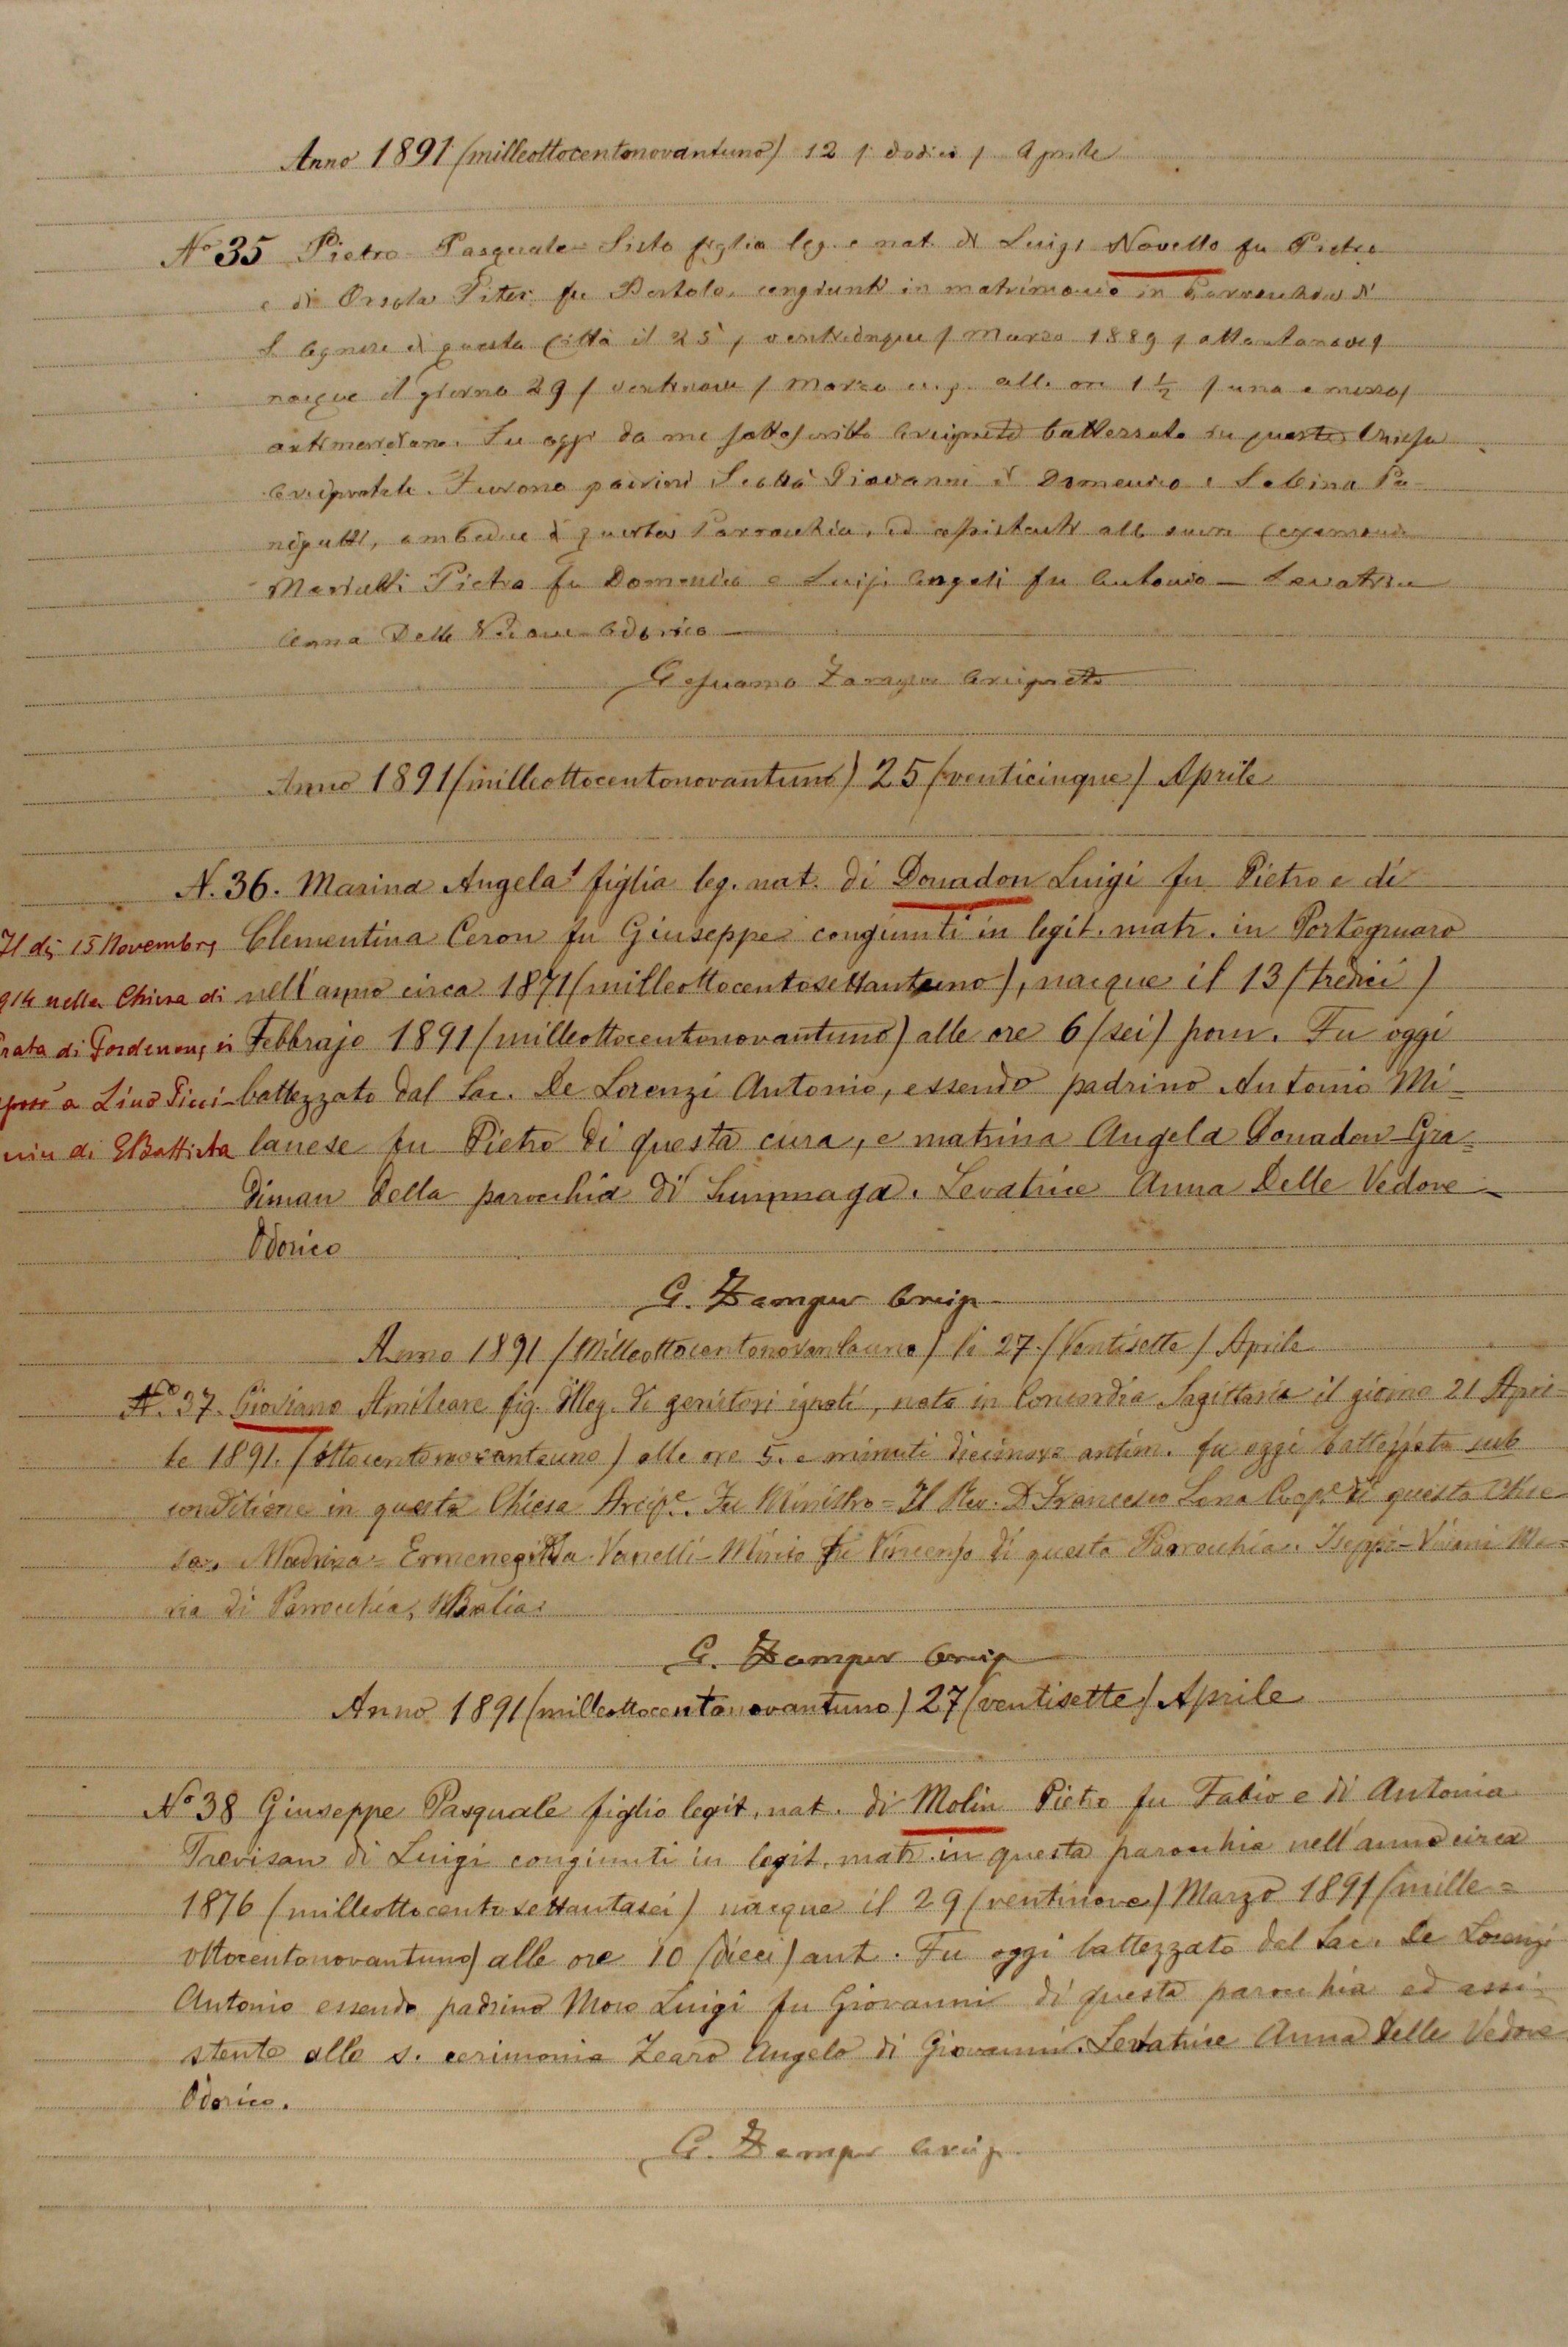 Anno 1891 (milleottocentonovantuno) 12 / dodici / Aprile
No 35 Pietro Pasquale Sisto figlio leg. e nat. di Luigi Novello fu Pietro
e di Orsola Piter fu Bortolo, congiunti in matrimonio in Parrocchia di
S. Agnese di questa Città il 25 / venticinque / Marzo 1889 / ottantanove /
nacque il giorno 29 / ventinove / Marzo alle ore 1 ½ / una e mezza /
antimeridiane. Fu oggi da me sottoscritto Arciprete battezzato in questa Chiesa
Arcipretale. Furono padrini Giovanni di Domenico e Sabina Pa-
nigutti, ambedue di questa Parrocchia, ed assistenti alla sacra Cerimonia
Pietro fu Domenico e Luigi Angeli fu Antonio — Levatrice
Anna Delle Vedove Odorico —
Arciprete
Anno 1891 (milleottocentonovantuno) 25 (venticinque) Aprile
N. 36. Marina Angela figlia leg. nat. di Donadon Luigi fu Pietro e di
Clementina Ceron fu Giuseppe congiunti in legit. matr. in Portogruaro
nell'anno circa 1871 (milleottocentosettantuno), nacque il 13 (tredici)
Febbrajo 1891 (milleottocentonovantuno) alle ore 6 (sei) pom. Fu oggi
battezzato dal Sac. De Lorenzi Antonio, essendo padrino Antonio Mi=
lanese fu Pietro di questa cura, e matrina Angela Donadon-Gra=
diman della parocchia di Summaga. Levatrice Anna Delle Vedove-
Odorico
Il dì 15 Novembre
914 nella Chiesa di
rata di Pordenone si
sposò a Lino Picci-
nin di GBattista
G. Zamper Arcip.
Anno 1891 / Milleottocentonovantauno / li 27 / Ventisette / Aprile
No. 37. Gioviano Amilcare fig. illeg. di genitori ignoti, nato in Concordia Sagittaria il giorno 21 Apri-
le 1891. / ottocentonovantauno / alle ore 5. e minuti diecinove antim. fu oggi battezzato sub
conditione in questa Chiesa Arcipe. Fu Ministro = Il Rev. D. Francesco Lena Coope di questa Chie
sa. Madrina = Ermenegilda Vanelli-Minio fu Vincenzo di questa Parrocchia. Iseppi-Viviani Ma=
ria di Parrocchia, Balia.
G. Zamper Arcip
Anno 1891 (milleottocentonovantuno) 27 (ventisette) Aprile
No 38 Giuseppe Pasquale figlio legit. nat. di Molin Pietro fu Fabio e di Antonia
Trevisan di Luigi congiunti in legit. matr. in questa parocchia nell'anno circa
1876 (milleottocentosettantasei) nacque il 29 (ventinove) Marzo 1891 (mille=
ottocentonovantuno) alle ore 10 (dieci) ant. Fu oggi battezzato dal Sac. De Lorenzi
Antonio essendo padrino Moro Luigi fu Giovanni di questa parocchia ed assi-
stente alla s. cerimonia Zearo Angelo di Giovanni. Levatrice Anna Delle Vedove
Odorico.
G. Zamper Arcip.